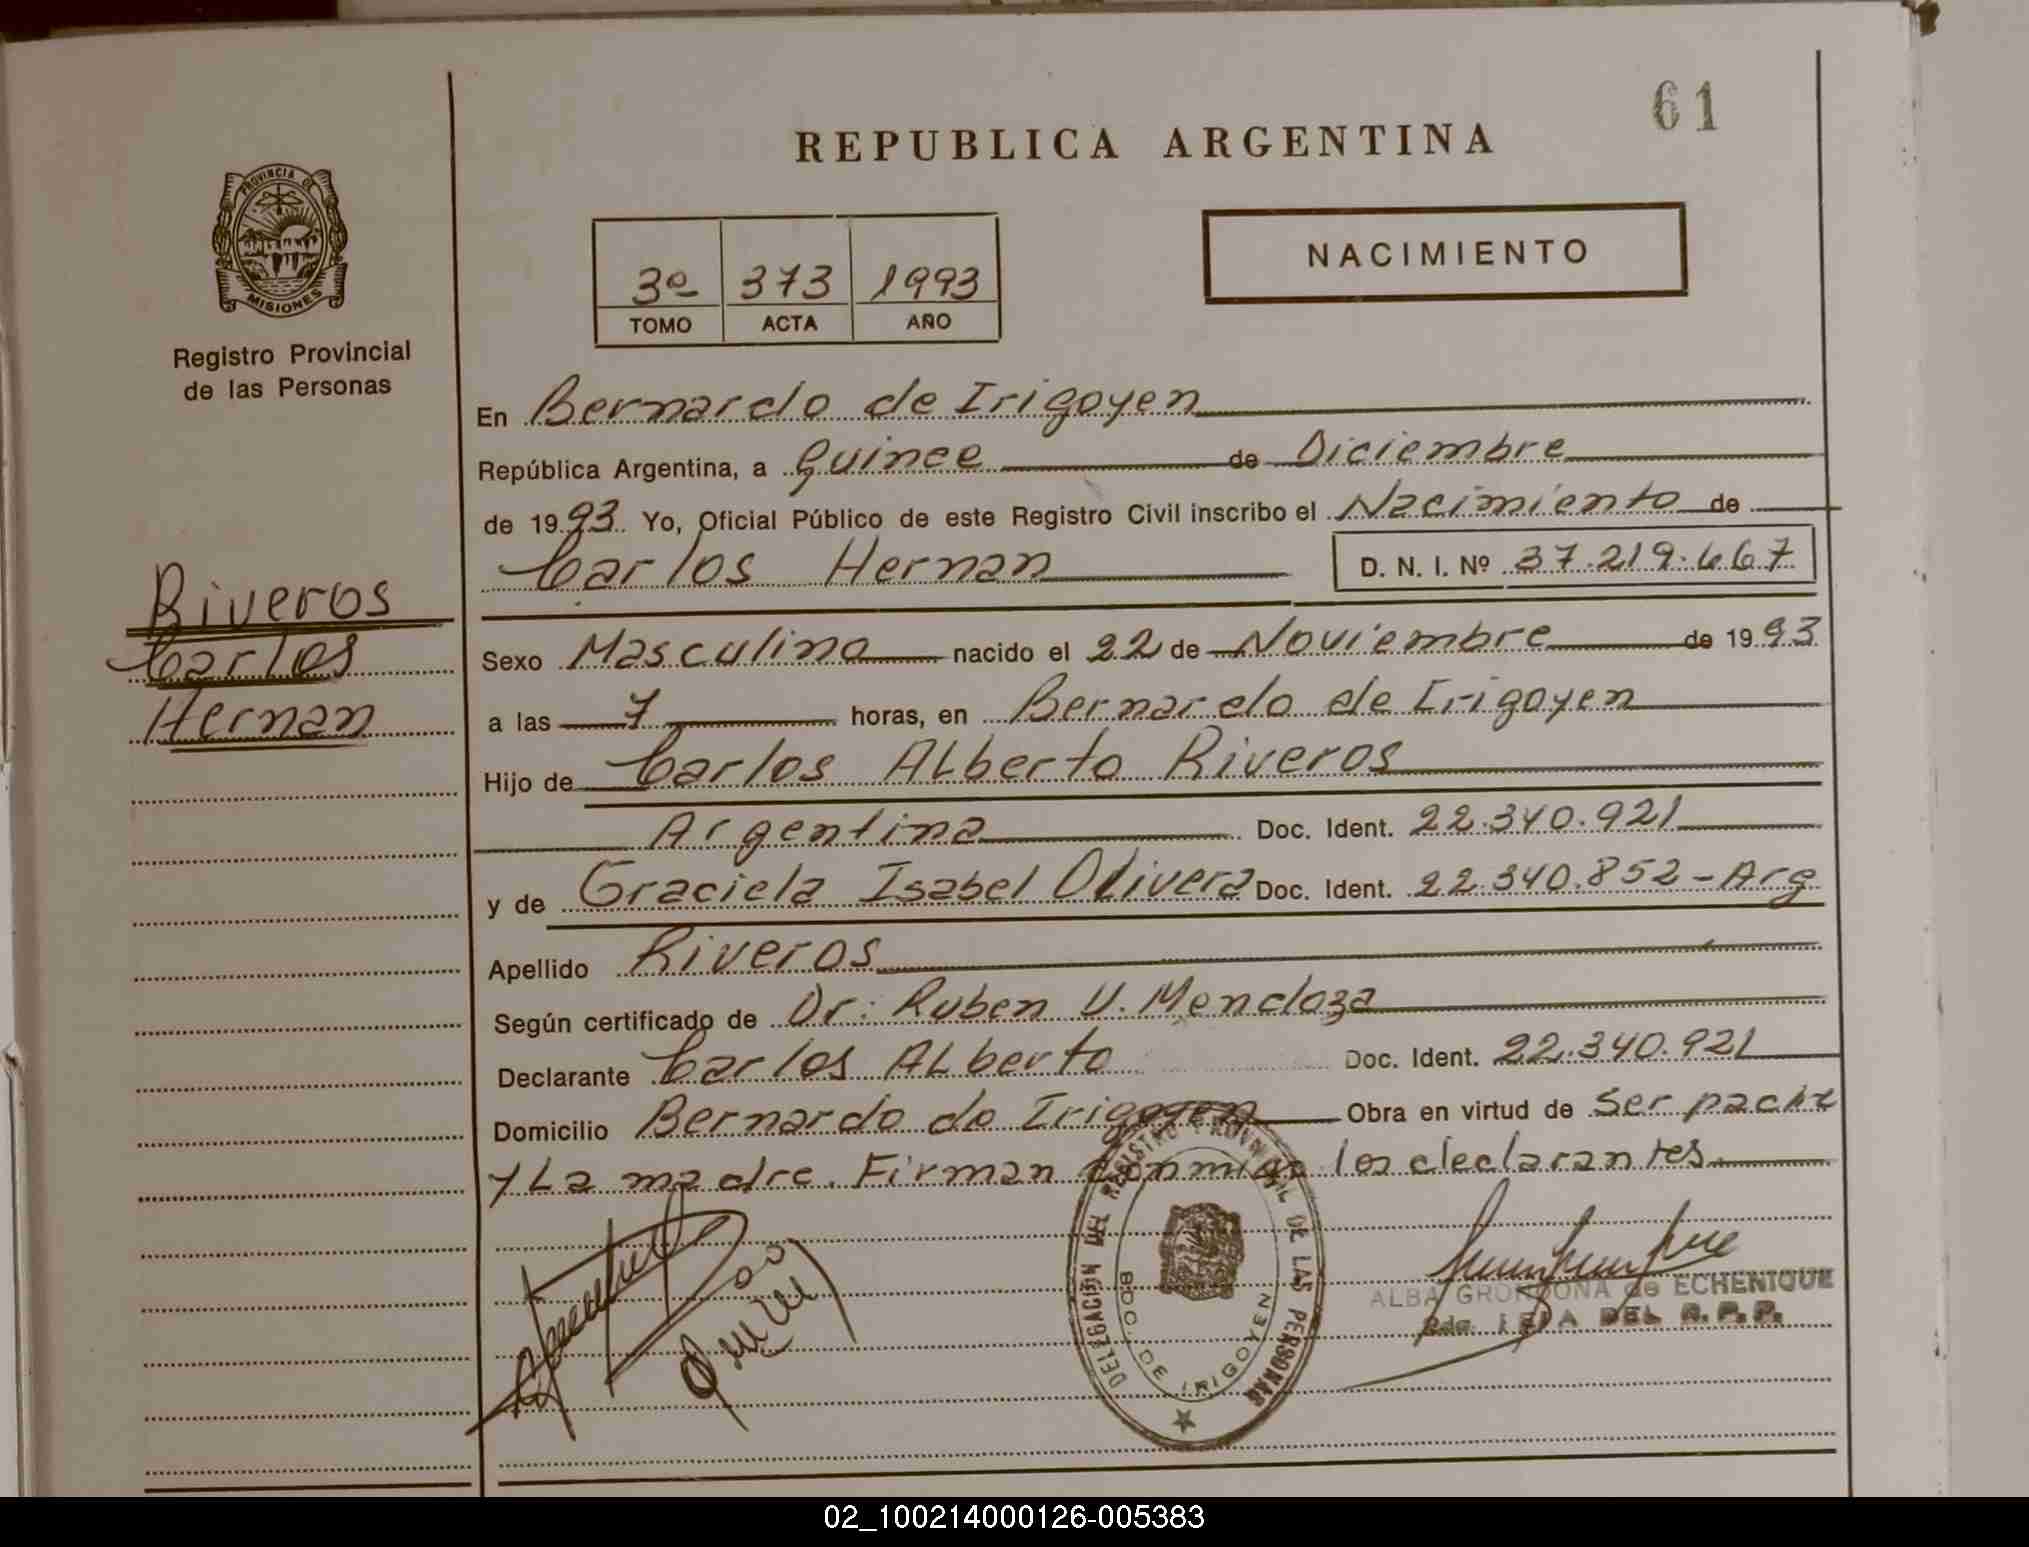 61
REPUBLICA ARGENTINA
PROVINCIA DE
MISIONES
Registro Provincial
de las Personas
3º 373 1993
TOMO ACTA AÑO
NACIMIENTO
Riveros
Carlos
Hernan
En Bernardo de Irigoyen
República Argentina, a Quince de Diciembre
de 1993 Yo, Oficial Público de este Registro Civil inscribo el Nacimiento de
Carlos Hernan D. N. I. Nº 37.219.667
Sexo Masculino nacido el 22 de Noviembre de 1993
a las 7 horas, en Bernardo de Irigoyen
Hijo de Carlos Alberto Riveros
Argentina Doc. Ident. 22.340.921
y de Graciela Isabel Olivera Doc. Ident. 22.340.852 - Arg
Apellido Riveros
Según certificado de Dr: Ruben U. Mendoza
Declarante Carlos Alberto Doc. Ident. 22.340.921
Domicilio Bernardo de Irigoyen Obra en virtud de ser padre
y La madre. Firman conmigo los declarantes
DELEGACION DEL REGISTRO PROVINCIAL DE LAS PERSONAS
BDO. DE IRIGOYEN
ALBA GRONDONA de ECHENIQUE
DEL R. P. P.
02_100214000126-005383